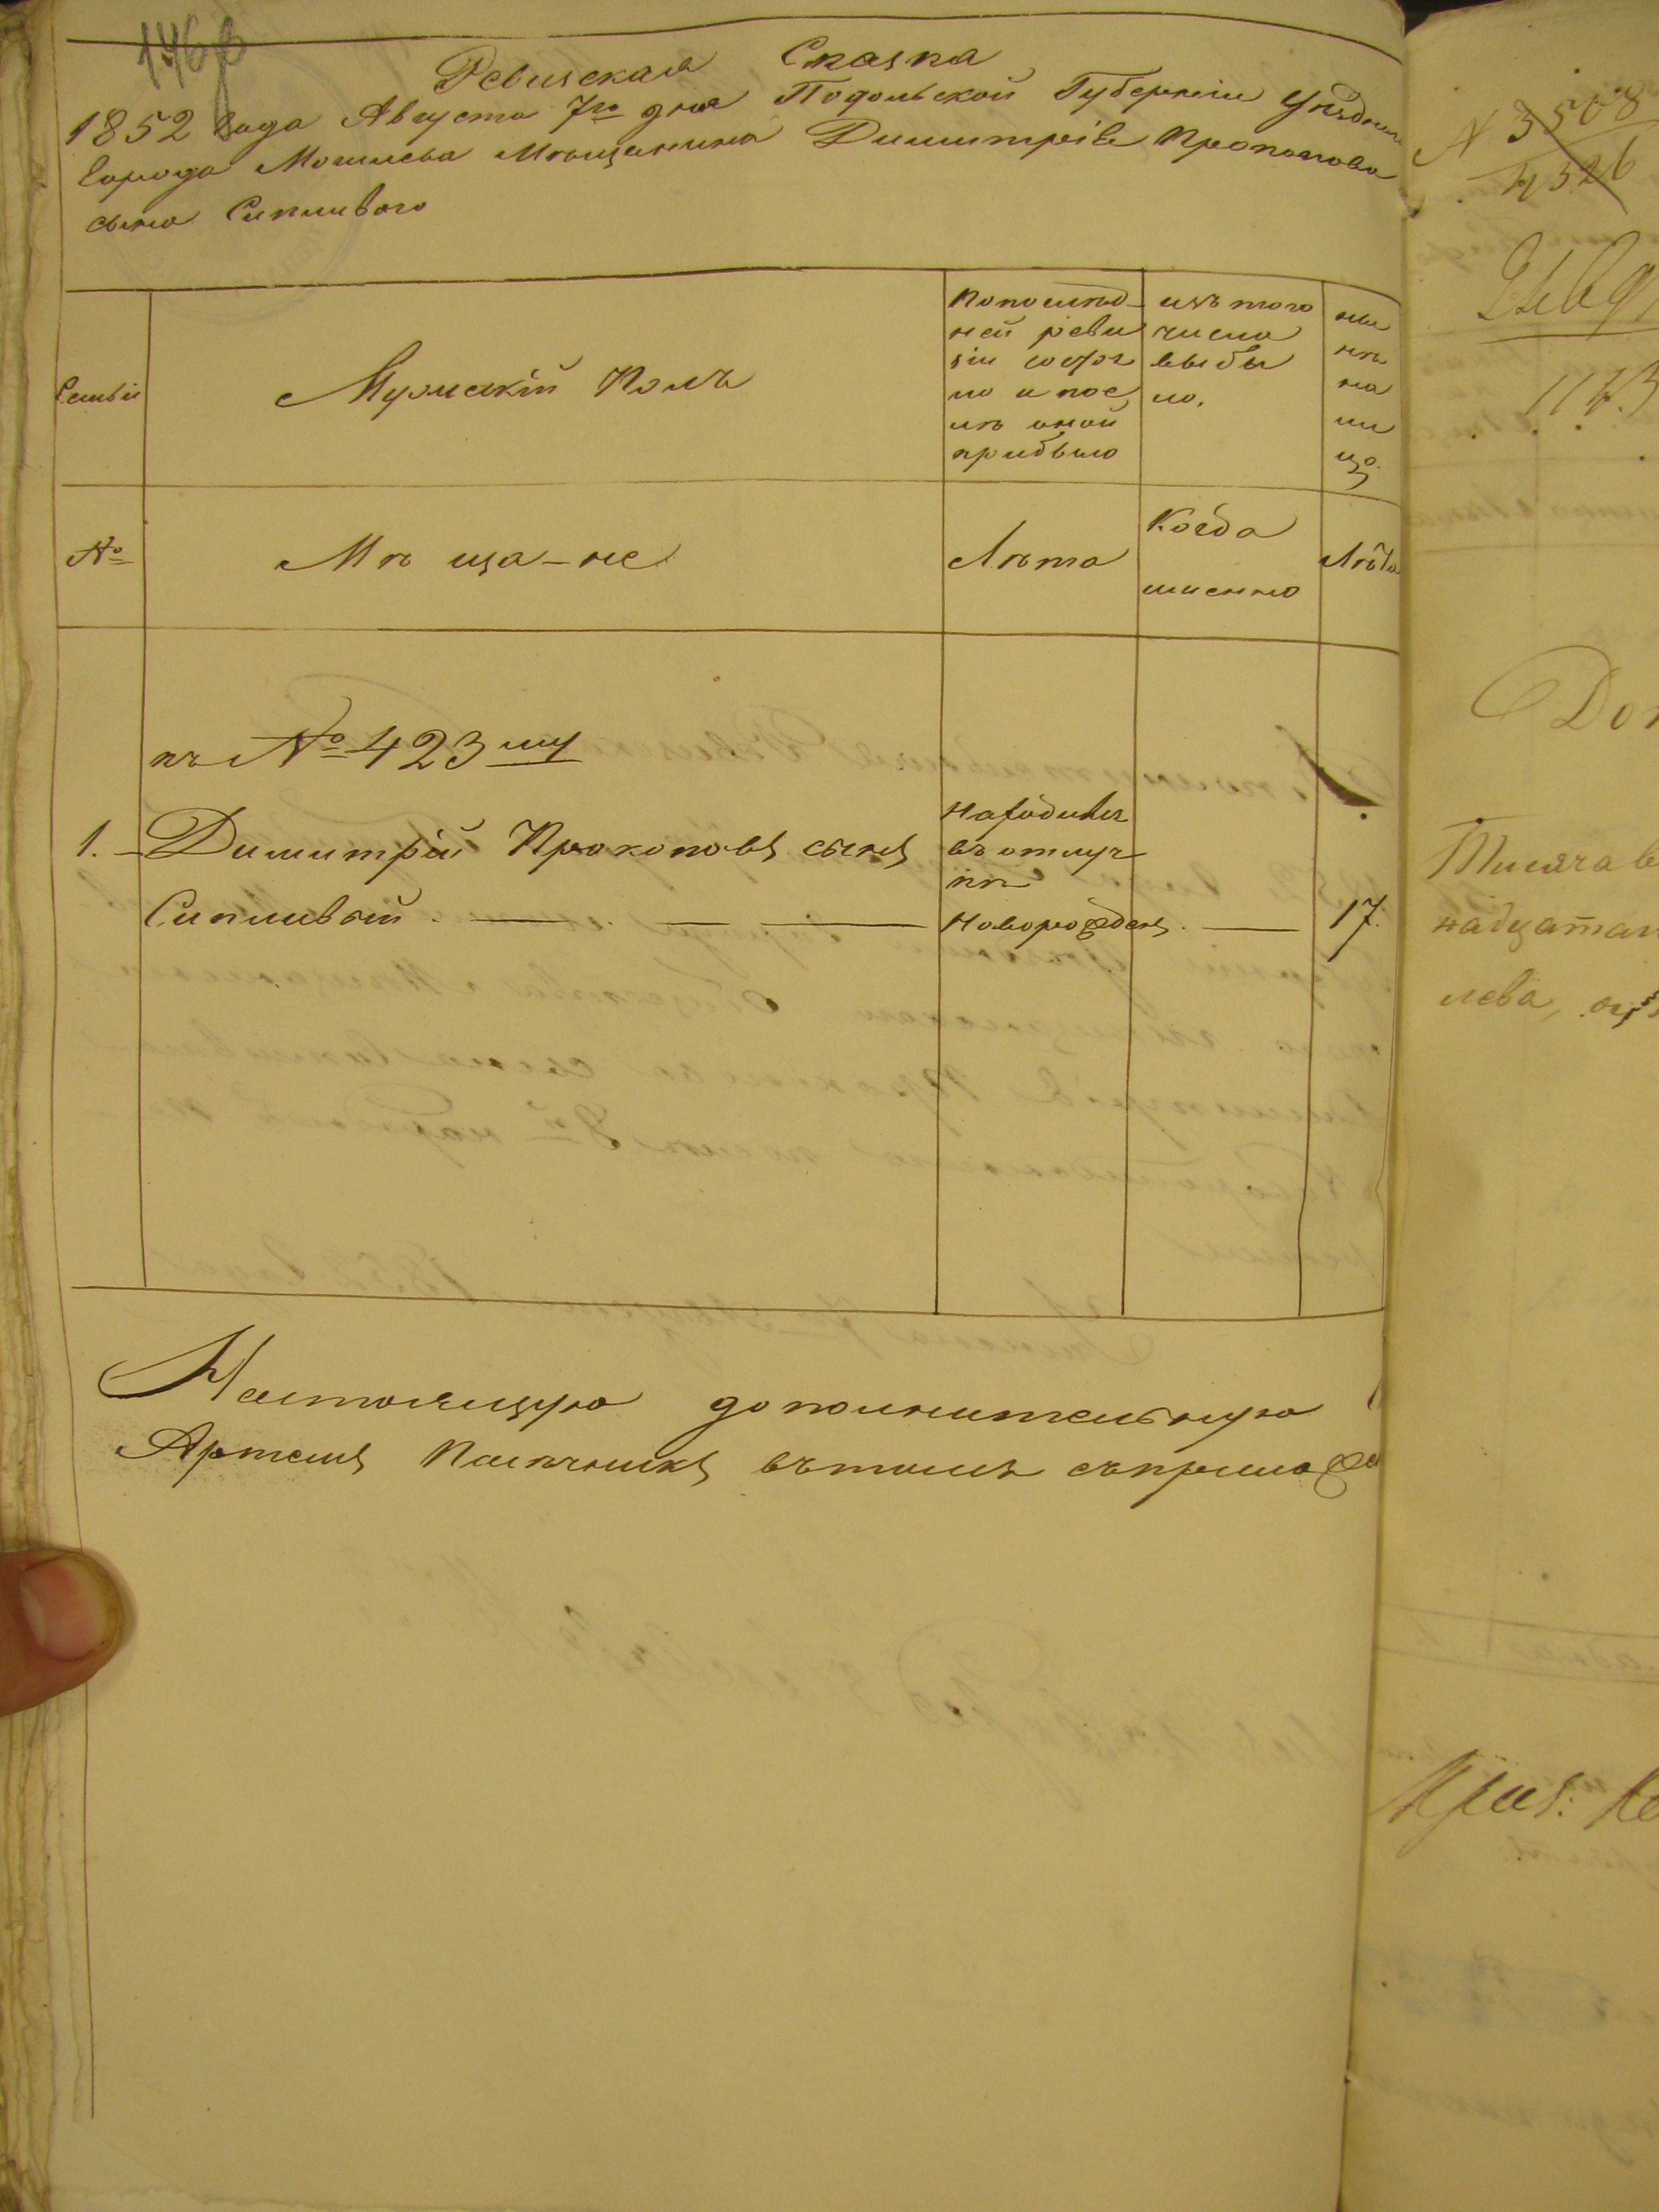 146
Ревизская Сказка
1852 Года Августа 7го дня Подольской Губерніи Уѣзднаго
города Могилева Мѣщанина Димитрія Прокопова
сына Сипливого
Семьи
Мужескій Полъ
По послѣд-
ней реви
зіи состоя
ло и пос
лѣ оной
прибыло
изъ того
числа
выбы
ло.
ны
нѣ
на
ли
цо.
№
Мѣ ща-не
Лѣта
Когда
именно
Лѣта
къ № 423му
1. Димитрій Прокоповъ сынъ
Сипливый
Находился
въ отлуч
кѣ
Новорожденъ.
17.
Настоящую дополнительную
Артемъ Пасѣчникъ вътомъ съприло
№ 3508
4526
1173
Доп
Тысяча в
надцатаг
лева,